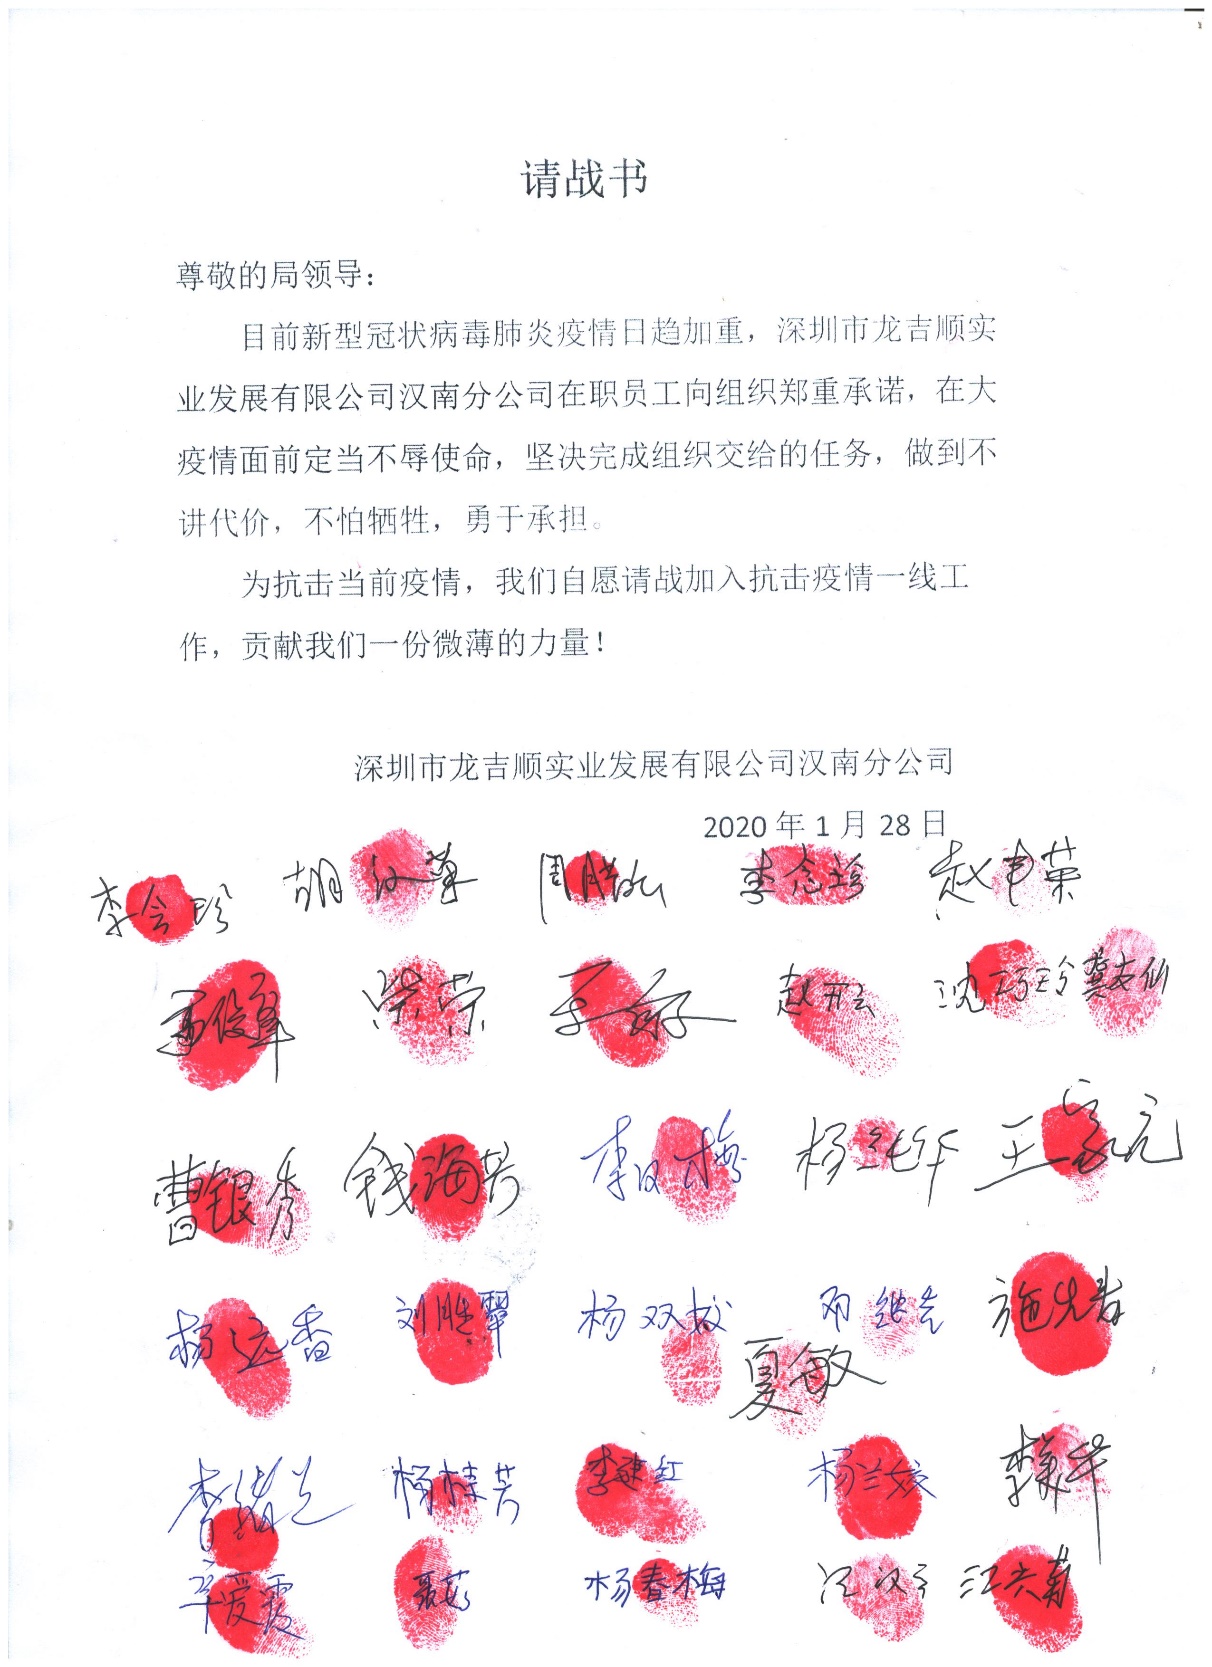 请战书
尊敬的局领导：
目前新型冠状病毒肺炎疫情日趋加重，深圳市龙吉顺实
业发展有限公司汉南分公司在职员工向组织郑重承诺，在大
疫情面前定当不辱使命，坚决完成组织交给的任务，做到不
讲代价，不怕牺牲，勇于承担。
为抗击当前疫情，我们自愿请战加入抗击疫情一线工
作，贡献我们一份微薄的力量！
深圳市龙吉顺实业发展有限公司汉南分公司
2020 年 1 月 28 日
李会珍 李念珍
柴荣 赵开云 沈巧玲 龚友仙
曹银秀 钱海芳 李汉梅 杨红华 王家元
杨远香 刘胜翠 杨双姣 邓继先 施先春
夏敏
杨桂芳 李建红 杨兰姣 李美华
辛爱霞 聂茹 杨春梅 江兴菊